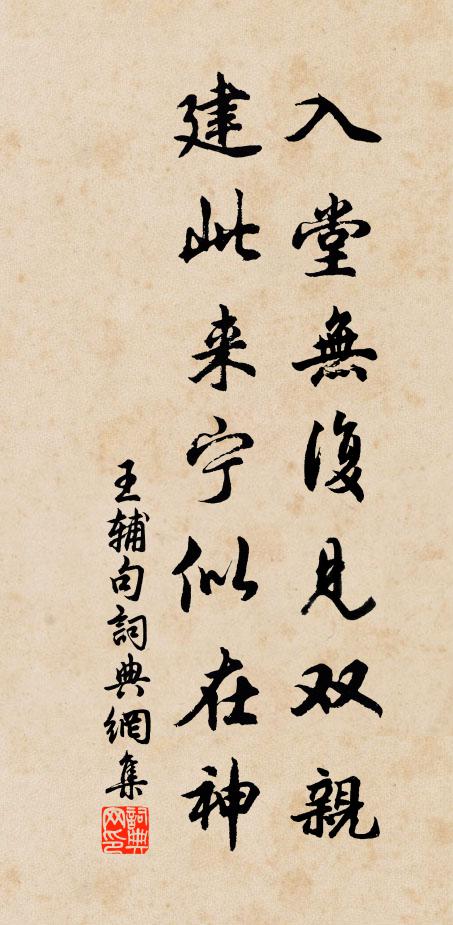 入堂無復見双親
建此来宁似在神
王辅句詞典網集
詞典
网印